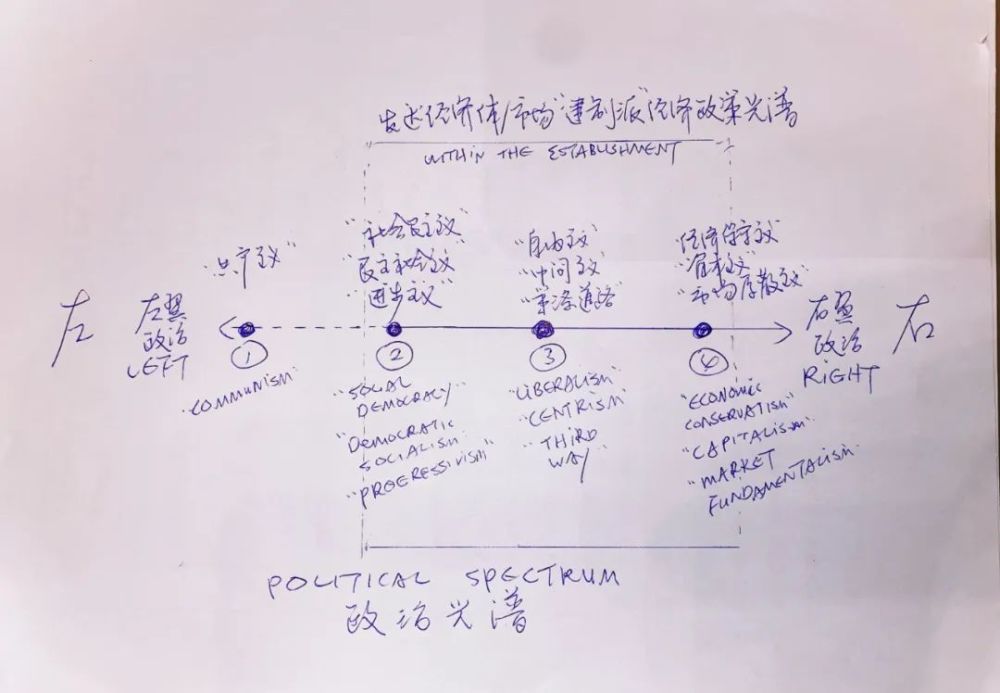 发达经济体/市场"建制派"经济政策光谱
WITHIN THE ESTABLISHMENT
"共产主义"
"社会民主主义"
"民主社会主义"
"进步主义"
"自由主义"
"中间主义"
"第三道路"
"经济保守主义"
"资本主义"
"市场原教旨主义"
左
左翼
政治
LEFT
①
②
③
④
右翼
政治
RIGHT
右
"COMMUNISM"
"SOCIAL
DEMOCRACY"
"DEMOCRATIC
SOCIALISM"
"PROGRESSIVISM"
"LIBERALISM"
"CENTRISM"
"THIRD
WAY"
"ECONOMIC
CONSERVATISM"
"CAPITALISM"
"MARKET
FUNDAMENTALISM"
POLITICAL SPECTRUM
政治光谱